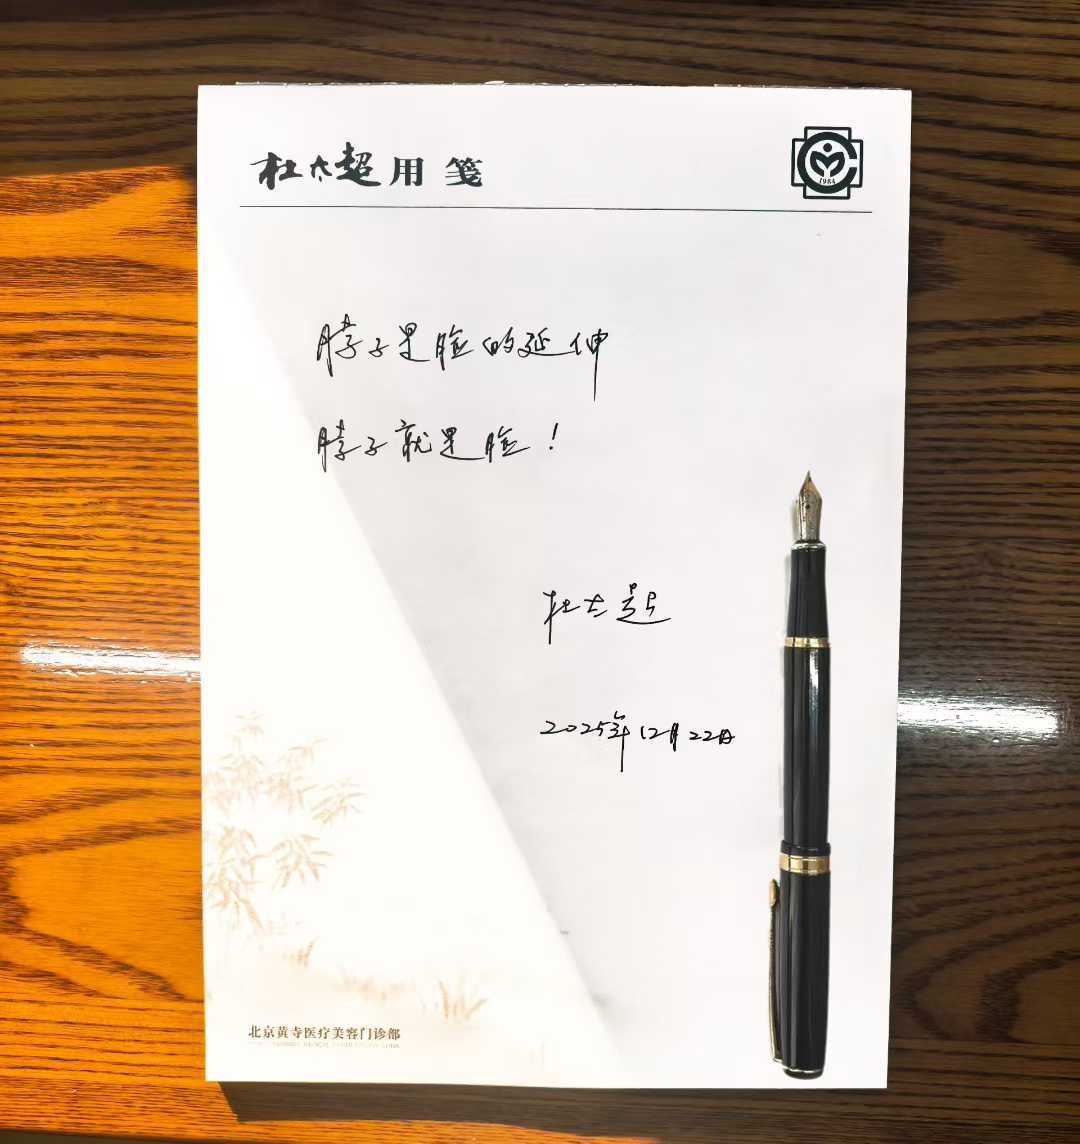 杜太超用笺
1984
脖子是脸的延伸
脖子就是脸！
杜太超
2025年12月22日
北京黄寺医疗美容门诊部